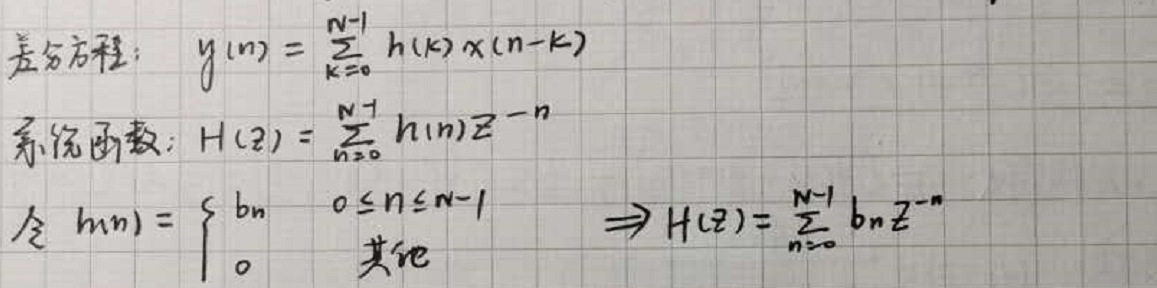 差分方程: y(n) = \sum_{k=0}^{N-1} h(k) x(n-k)
系统函数: H(z) = \sum_{n=0}^{N-1} h(n) z^{-n}
令 h(n) = \begin{cases} b_n & 0 \le n \le N-1 \\ 0 & 其他 \end{cases} \Rightarrow H(z) = \sum_{n=0}^{N-1} b_n z^{-n}